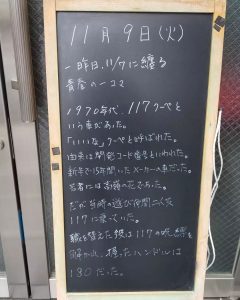 11月9日(火)
一昨日、11/7に纏る
青春の一コマ
1970年代、117クーペと
いう車があった。
「いいな」クーペと呼ばれた。
由来は開発コード番号といわれた。
新车で15年間いたメーカー人車だった。
若者には高嶺の花であった。
だが当時の遊び仲間二人友
117に乗っていた。
職を替えた彼は117の呪縛を
解かれ、握ったハンドルは
130だった。